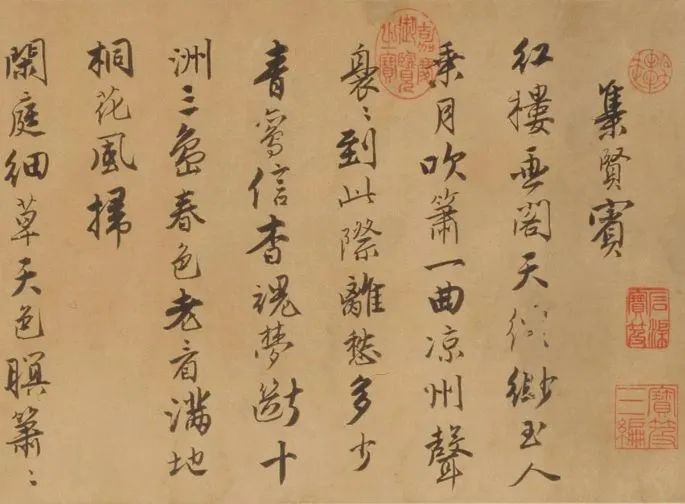 集賢賓
紅樓画閣天縹緲玉人
乘月吹簫一曲凉州聲
裊〻到此際離愁多少
青鸞信杳魂夢斷十
洲三島春色老看滿地
桐花風掃
閑庭細草天色暝簫〻
嘉慶御覽之寶
石渠寶笈
寶笈三編